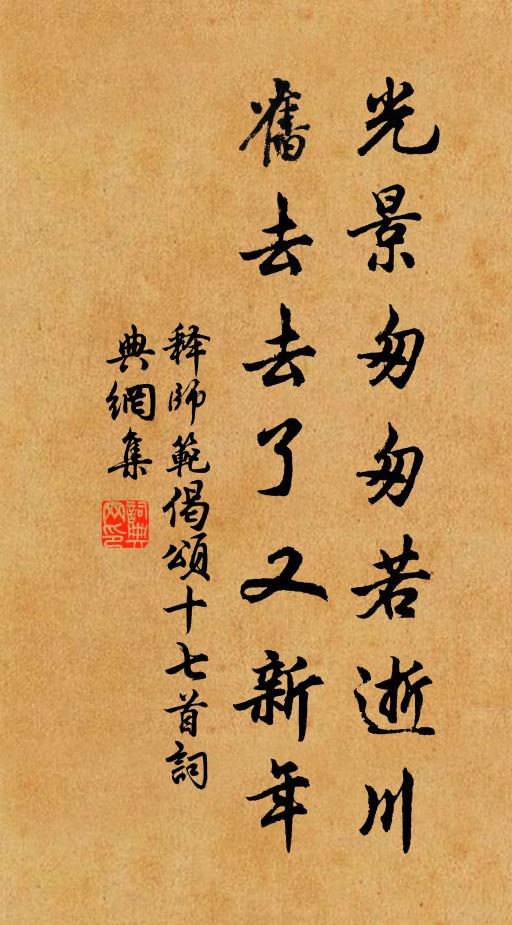 光景匆匆若逝川
舊去去了又新年
释師範偈頌十七首詞
典網集
詞典
网印